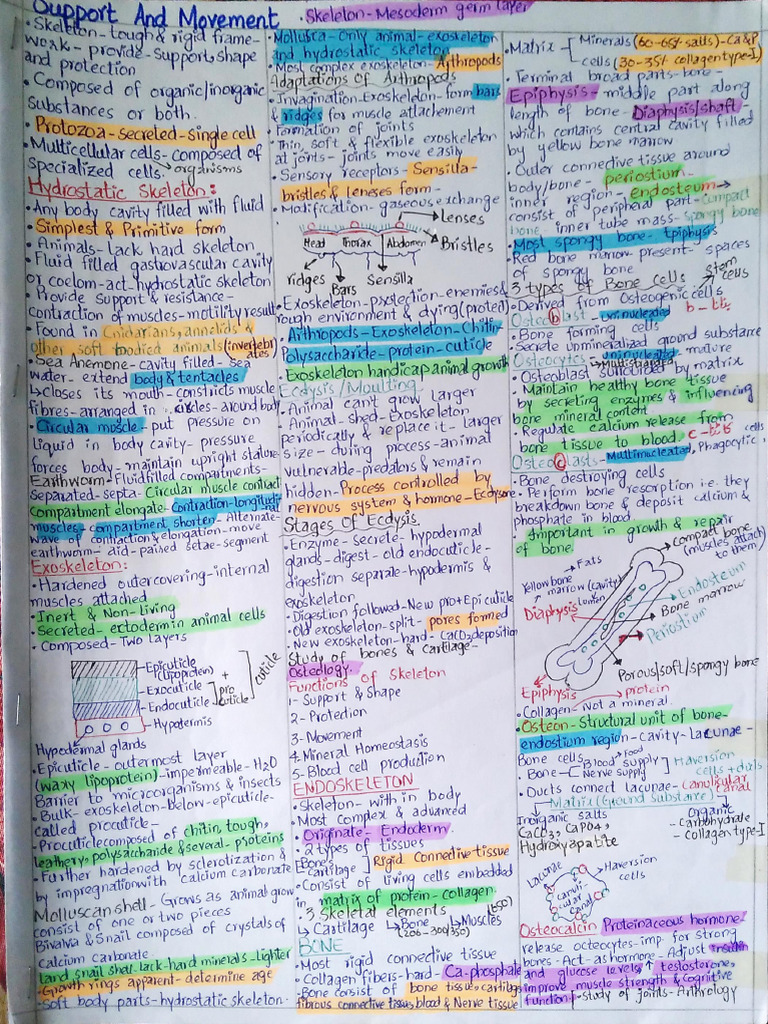 Support And Movement
Skeleton - Mesoderm germ layer
• Skeleton - tough & rigid frame-
work - provide - support, shape
and protection
• Composed of organic/inorganic
substances or both.
• Protozoa - secreted - single cell
• Multicellular cells - composed of
specialized cells. → organisms
Hydrostatic Skeleton:
• Any body cavity filled with fluid
• Simplest & Primitive form
• Animals - lack hard skeleton
• Fluid filled gastrovascular cavity
or coelom - act - hydrostatic skeleton
• Provide support & resistance -
contraction of muscles - motility result
• Found in Cnidarians, annelids &
other soft bodied animals (invertebr
ates)
• Sea Anemone - cavity filled - sea
water - extend body & tentacles
↳ closes its mouth - constricts muscle
fibres - arranged in circles - around body
• Circular muscle - put pressure on
liquid in body cavity - pressure
forces body - maintain upright stature
Earthworm - Fluid filled compartments -
separated - septa - Circular muscle contract
compartment elongate - Contraction - longitudi
nal
muscles - compartment shorten - Alternate
wave of contraction & elongation - move
earthworm - aid - paired setae - segment
Exoskeleton:
• Hardened outercovering - internal
muscles attached
• Inert & Non-living
• Secreted - ectoderm in animal cells
• Composed - Two layers
Epicuticle
(Lipoprotein)
Exocuticle
Endocuticle
+
pro
cuticle
cuticle
Hypotermis
Hypodermal glands
• Epicuticle - outermost layer
(waxy lipoprotein) - impermeable - H2O
Barrier to microorganisms & insects
• Bulk - exoskeleton - below - epicuticle -
called procuticle -
• Procuticle composed of chitin, tough,
leathery, polysaccharide & several - proteins
• Further hardened by sclerotization &
by impregnation with calcium carbonate
Molluscan shell - Grows as animal grow
consist of one or two pieces
Bivalvia & Snail composed of crystals of
Calcium carbonate
Land snail shell - lack - hard minerals - Lighter
• Growth rings apparent - determine age
• Soft body parts - hydrostatic skeleton -
• Mollusca - Only animal - exoskeleton
and hydrostatic skeleton
• Most complex exoskeleton - Arthropods
Adaptations Of Arthropods
• Invagination - Exoskeleton - form bars
& ridges for muscle attachement
• Formation of joints
• Thin, soft & flexible exoskeleton
at joints - joints move easily
• Sensory receptors - Sensilla -
bristles & lenses form -
• Modification - gaseous exchange
Lenses
Head Thorax Abdomen
Bristles
ridges
Bars
Sensilla
• Exoskeleton - protection - enemies &
rough environment & dying (protect)
• Arthropods - Exoskeleton - Chitin -
Polysaccharide - protein - cuticle
• Exoskeleton handicap animal growth
Ecdysis / Moulting
• Animal can't grow larger
• Animal - shed - exoskeleton
periodically & replace it - larger
size - during process - animal
vulnerable - predators & remain
hidden - Process controlled by
nervous system & hormone - Ecdysone
Stages Of Ecdysis
• Enzyme - secrete - hypodermal
glands - digest - old endocuticle -
digestion separate - hypodermis &
exoskeleton
• Digestion followed - New pro + Epicuticle
• Old exoskeleton - split - pores formed
• New exoskeleton - hard - CaCO3 deposition
Study of bones & cartilage -
Osteology
Functions of Skeleton
1- Support & Shape
2- Protection
3- Movement
4- Mineral Homeostasis
5- Blood cell production
ENDOSKELETON
• Skeleton - with in body
• Most complex & advanced
• Originate - Endoderm
• 2 types of tissues
Bone
cartilage
Rigid Connective tissue
• Consist of living cells embedded
in matrix of protein - collagen
• 3 Skeletal elements
→ Cartilage → Bone → Muscles
(206 - 300/350) (650)
BONE
• Most rigid connective tissue
• Collagen fibers - hard - Ca-phosphate
• Bone consist of bone tissue, cartilage
fibrous connective tissue, blood & Nerve tissue
• Matrix
Minerals (60-65% salts) - Ca & P
cells (30-35% collagen type-I)
• Terminal broad parts - bone -
Epiphysis - middle part along
length of bone - Diaphysis/shaft -
which contains central cavity filled
by yellow bone marrow
• Outer connective tissue around
body/bone - periostium
inner region - endosteum →
consist of peripheral part - compact
bone inner tube mass - spongy bone
• Most spongy bone - Epiphysis
• Red bone marrow present - spaces
of spongy bone
3 types of Bone Cells → stem
cells
• Derived from Osteogenic cells
Osteoblast - uninucleated b - bt.
• Bone forming cells
• Secrete unmineralized ground substance
Osteocytes - uninucleated - mature
• Osteoblast surrounded by matrix
• Maintain healthy bone tissue
by secreting enzymes & influencing
bone mineral content
• Regulate calcium release from
bone tissue to blood.
Osteoclasts - Multinucleated, Phagocytic,
• Bone destroying cells
• Perform bone resorption i.e. they
breakdown bone & deposit calcium &
phosphate in blood
• Important in growth & repair
of bone.
compact bone
(muscles attach
to them)
Fats
Yellow bone
marrow (cavity)
Lumen
Diaphysis
Endosteum
Bone marrow
Periostium
Porous/soft/spongy bone
Epiphysis
protein
• Collagen - Not a mineral.
• Osteon - Structural unit of bone -
endostium region - cavity - Lacunae -
Bone cells
• Bone
Blood supply
Food
Nerve supply
Haversion
cells + ducts
• Ducts connect lacunae - canulicular
canal
Matrix (Ground substance)
Inorganic Salts
CaCO3, CaPO4,
Hydroxyapatite
Organic
- Carbohydrate
- Collagen type-I
Lacunae
Haversion
cells
Canuli-
cular
Canal
Osteocalcin Proteinaceous hormone
release osteocytes - imp for strong
bones - Act - as hormone - Adjust insulin
and glucose levels, ↑ testosterone,
improve muscle strength & Cognitive
function • Study of joints - Arthrology